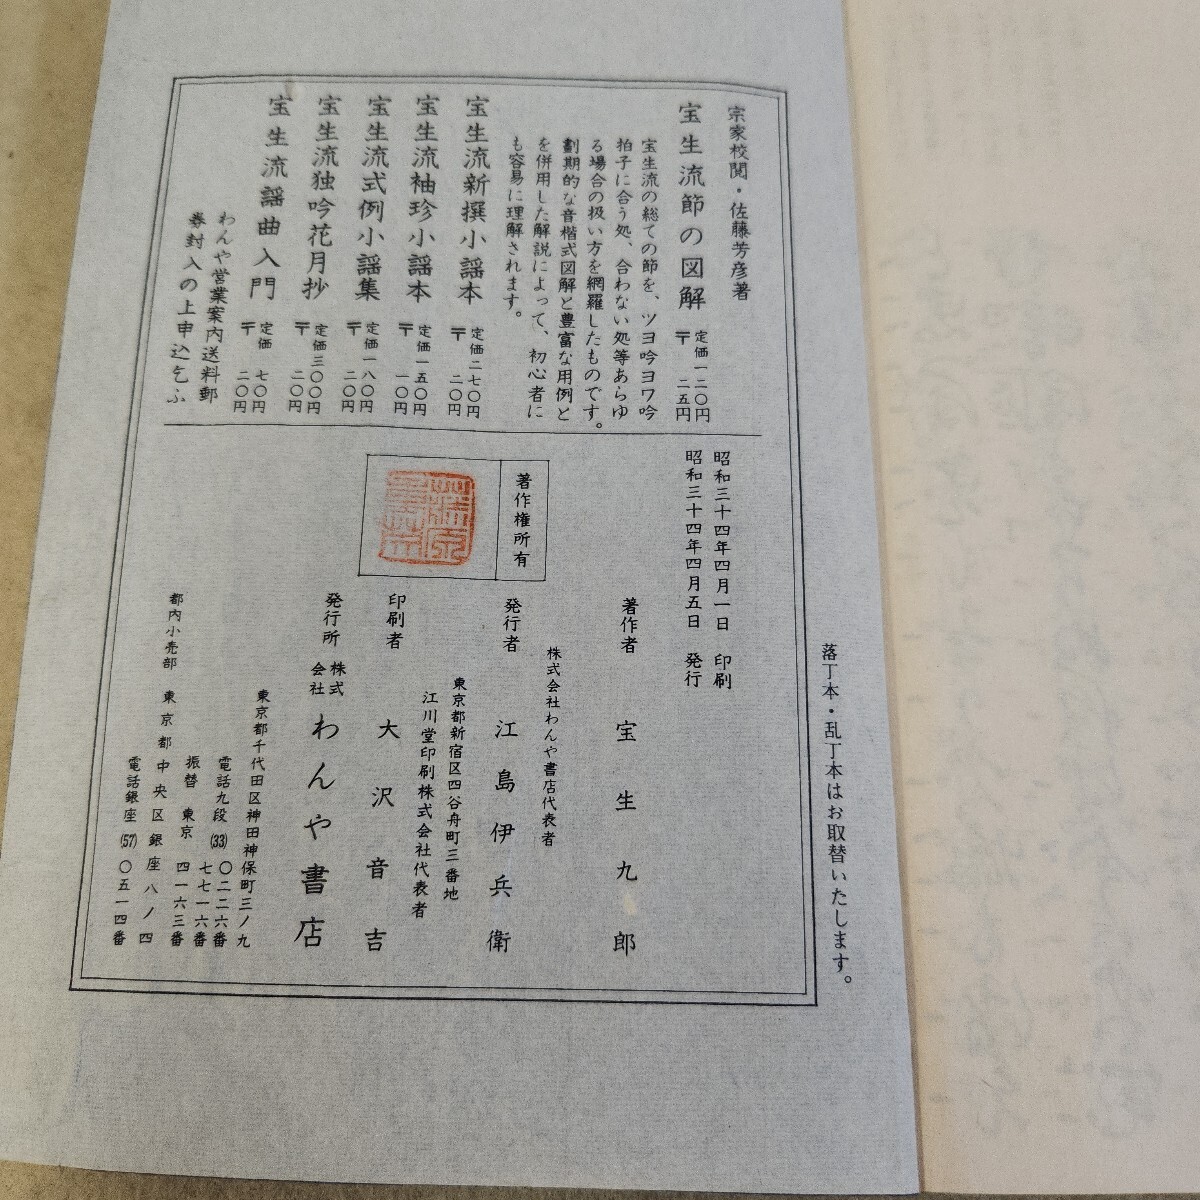 宗家校閲・佐藤芳彦著
宝生流節の図解
定価一二〇円
〒二五円
宝生流の総ての節を、ツヨ吟ヨワ吟
拍子に合う処、合わない処等あらゆ
る場合の扱い方を網羅したものです。
劃期的な音楷式図解と豊富な用例と
を併用した解説によって、初心者に
も容易に理解されます。
宝生流新撰小謡本
定価二七〇円
〒二〇円
宝生流袖珍小謡本
定価一五〇円
〒一〇円
宝生流式例小謡集
定価一八〇円
〒二〇円
宝生流独吟花月抄
定価三〇〇円
〒二〇円
宝生流謡曲入門
定価七〇円
〒二〇円
わんや営業案内送料郵
券封入の上申込乞ふ
昭和三十四年四月一日 印刷
昭和三十四年四月五日 発行
著作権所有
著作者 宝生九郎
株式会社わんや書店代表者
発行者 江島伊兵衛
東京都新宿区四谷舟町三番地
江川堂印刷株式会社代表者
印刷者 大沢音吉
発行所 株式会社 わんや書店
東京都千代田区神田神保町三ノ九
電話九段(33)〇二二六番
七七一六番
振替東京四一六三番
都内小売部 東京都中央区銀座八ノ四
電話銀座(57)〇五一四番
落丁本・乱丁本はお取替いたします。